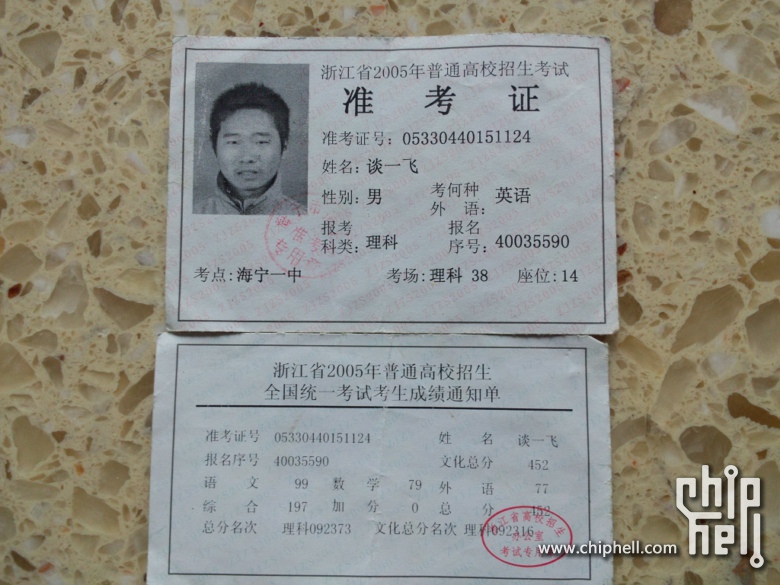 浙江省2005年普通高校招生考试
准考证
准考证号：05330440151124
姓名：谈一飞
性别：男 考何种外语：英语
报考科类：理科 报名序号：40035590
考点：海宁一中 考场：理科 38 座位：14
浙江省2005年普通高校招生
全国统一考试考生成绩通知单
准考证号 05330440151124 姓名 谈一飞
报名序号 40035590 文化总分 452
语文 99 数学 79 外语 77
综合 197 加分 0 总分 452
总分名次 理科092373 文化总分名次 理科092316
浙江省高校招生
办公室
考试专用章
chip
hell
www.chiphell.com